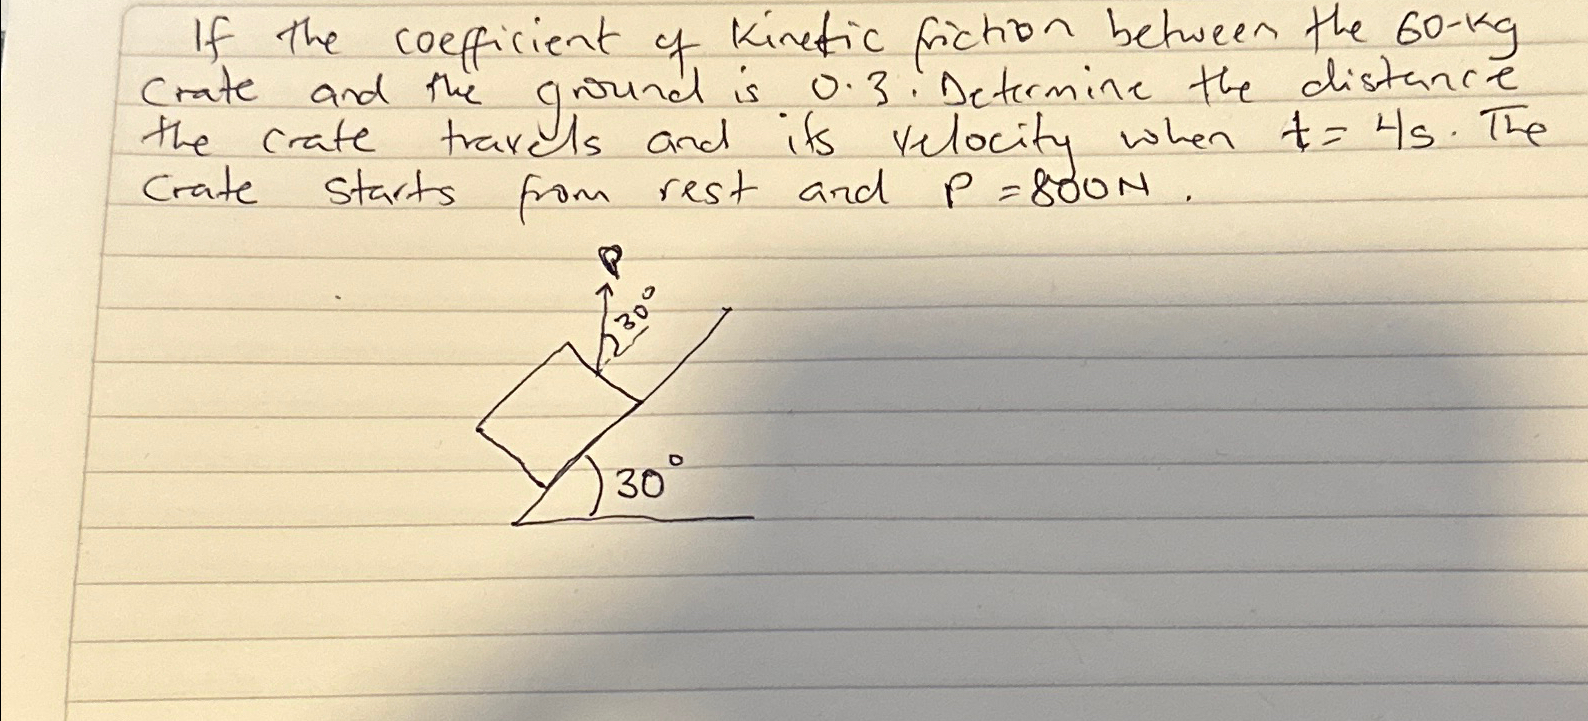 If the coefficient of kinetic friction between the 60-kg
crate and the ground is 0.3. Determine the distance
the crate travels and its velocity when t = 4s. The
crate starts from rest and P = 800N.
P
30°
30°